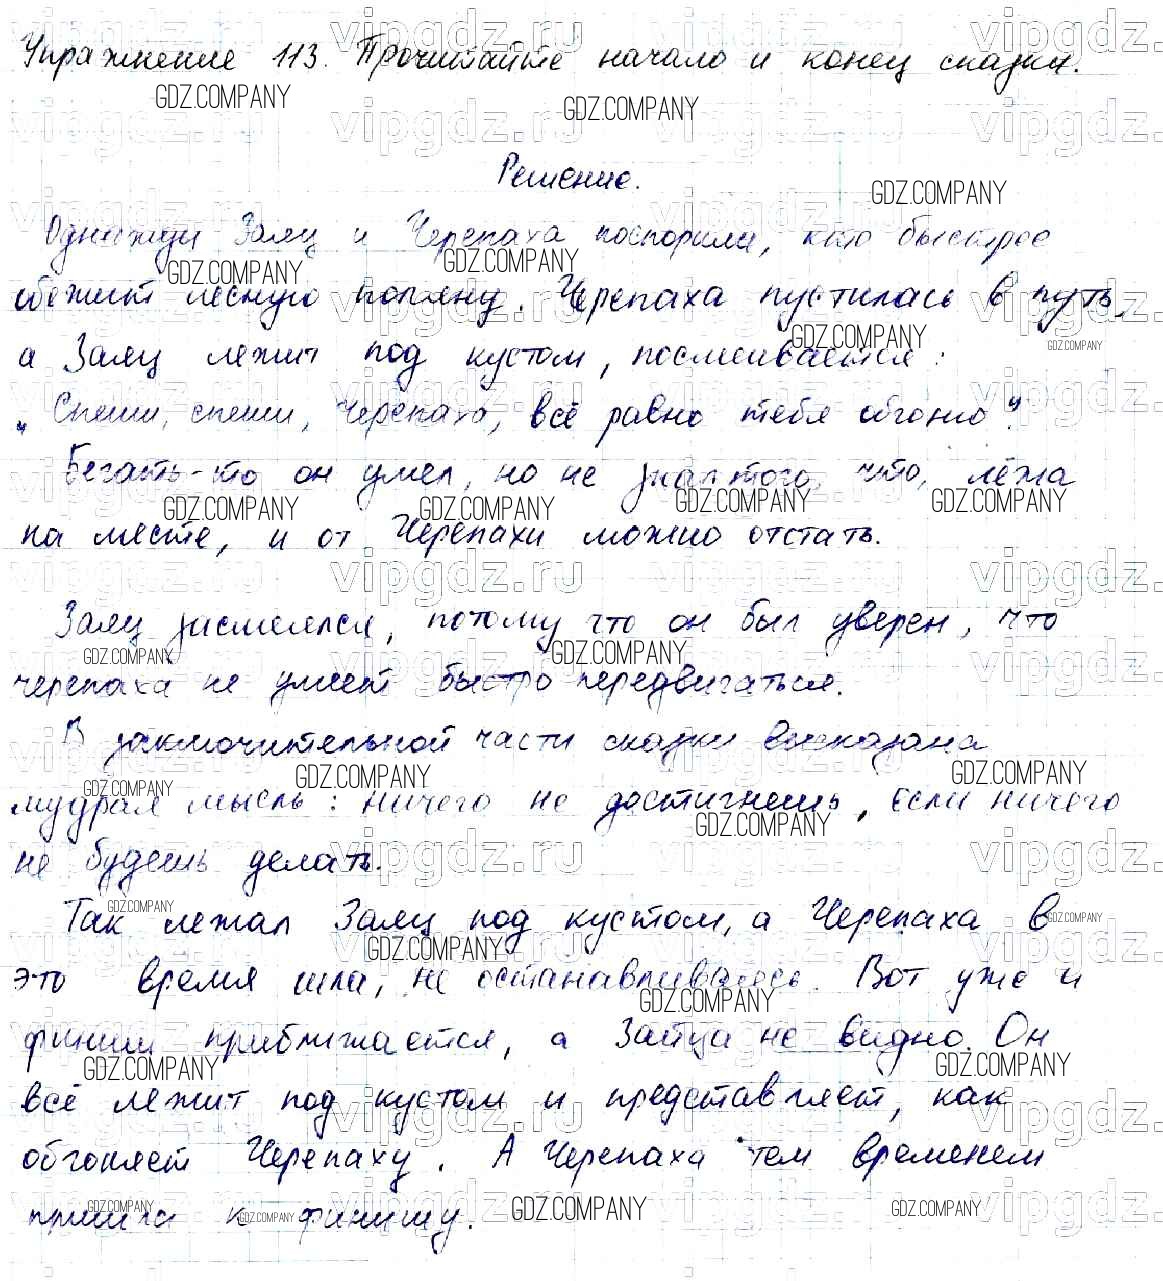 Упражнение 113. Прочитайте начало и конец сказки.
Решение.
Однажды Заяц и Черепаха поспорили, кто быстрее
обежит лесную поляну. Черепаха пустилась в путь,
а Заяц лежит под кустом, посмеивается:
„Спеши, спеши, Черепаха, всё равно тебя обгоню".
Бегать-то он умел, но не знал того, что, лёжа
на месте, и от Черепахи можно отстать.
Заяц засмеялся, потому что он был уверен, что
черепаха не умеет быстро передвигаться.
В заключительной части сказки высказана
мудрая мысль: ничего не достигнешь, если ничего
не будешь делать.
Так лежал Заяц под кустом, а Черепаха в
это время шла, не останавливаясь. Вот уже и
финиш приближается, а Зайца не видно. Он
всё лежит под кустом и представляет, как
обгоняет Черепаху. А Черепаха тем временем
пришла к финишу.
GDZ.COMPANY
vipgdz.ru